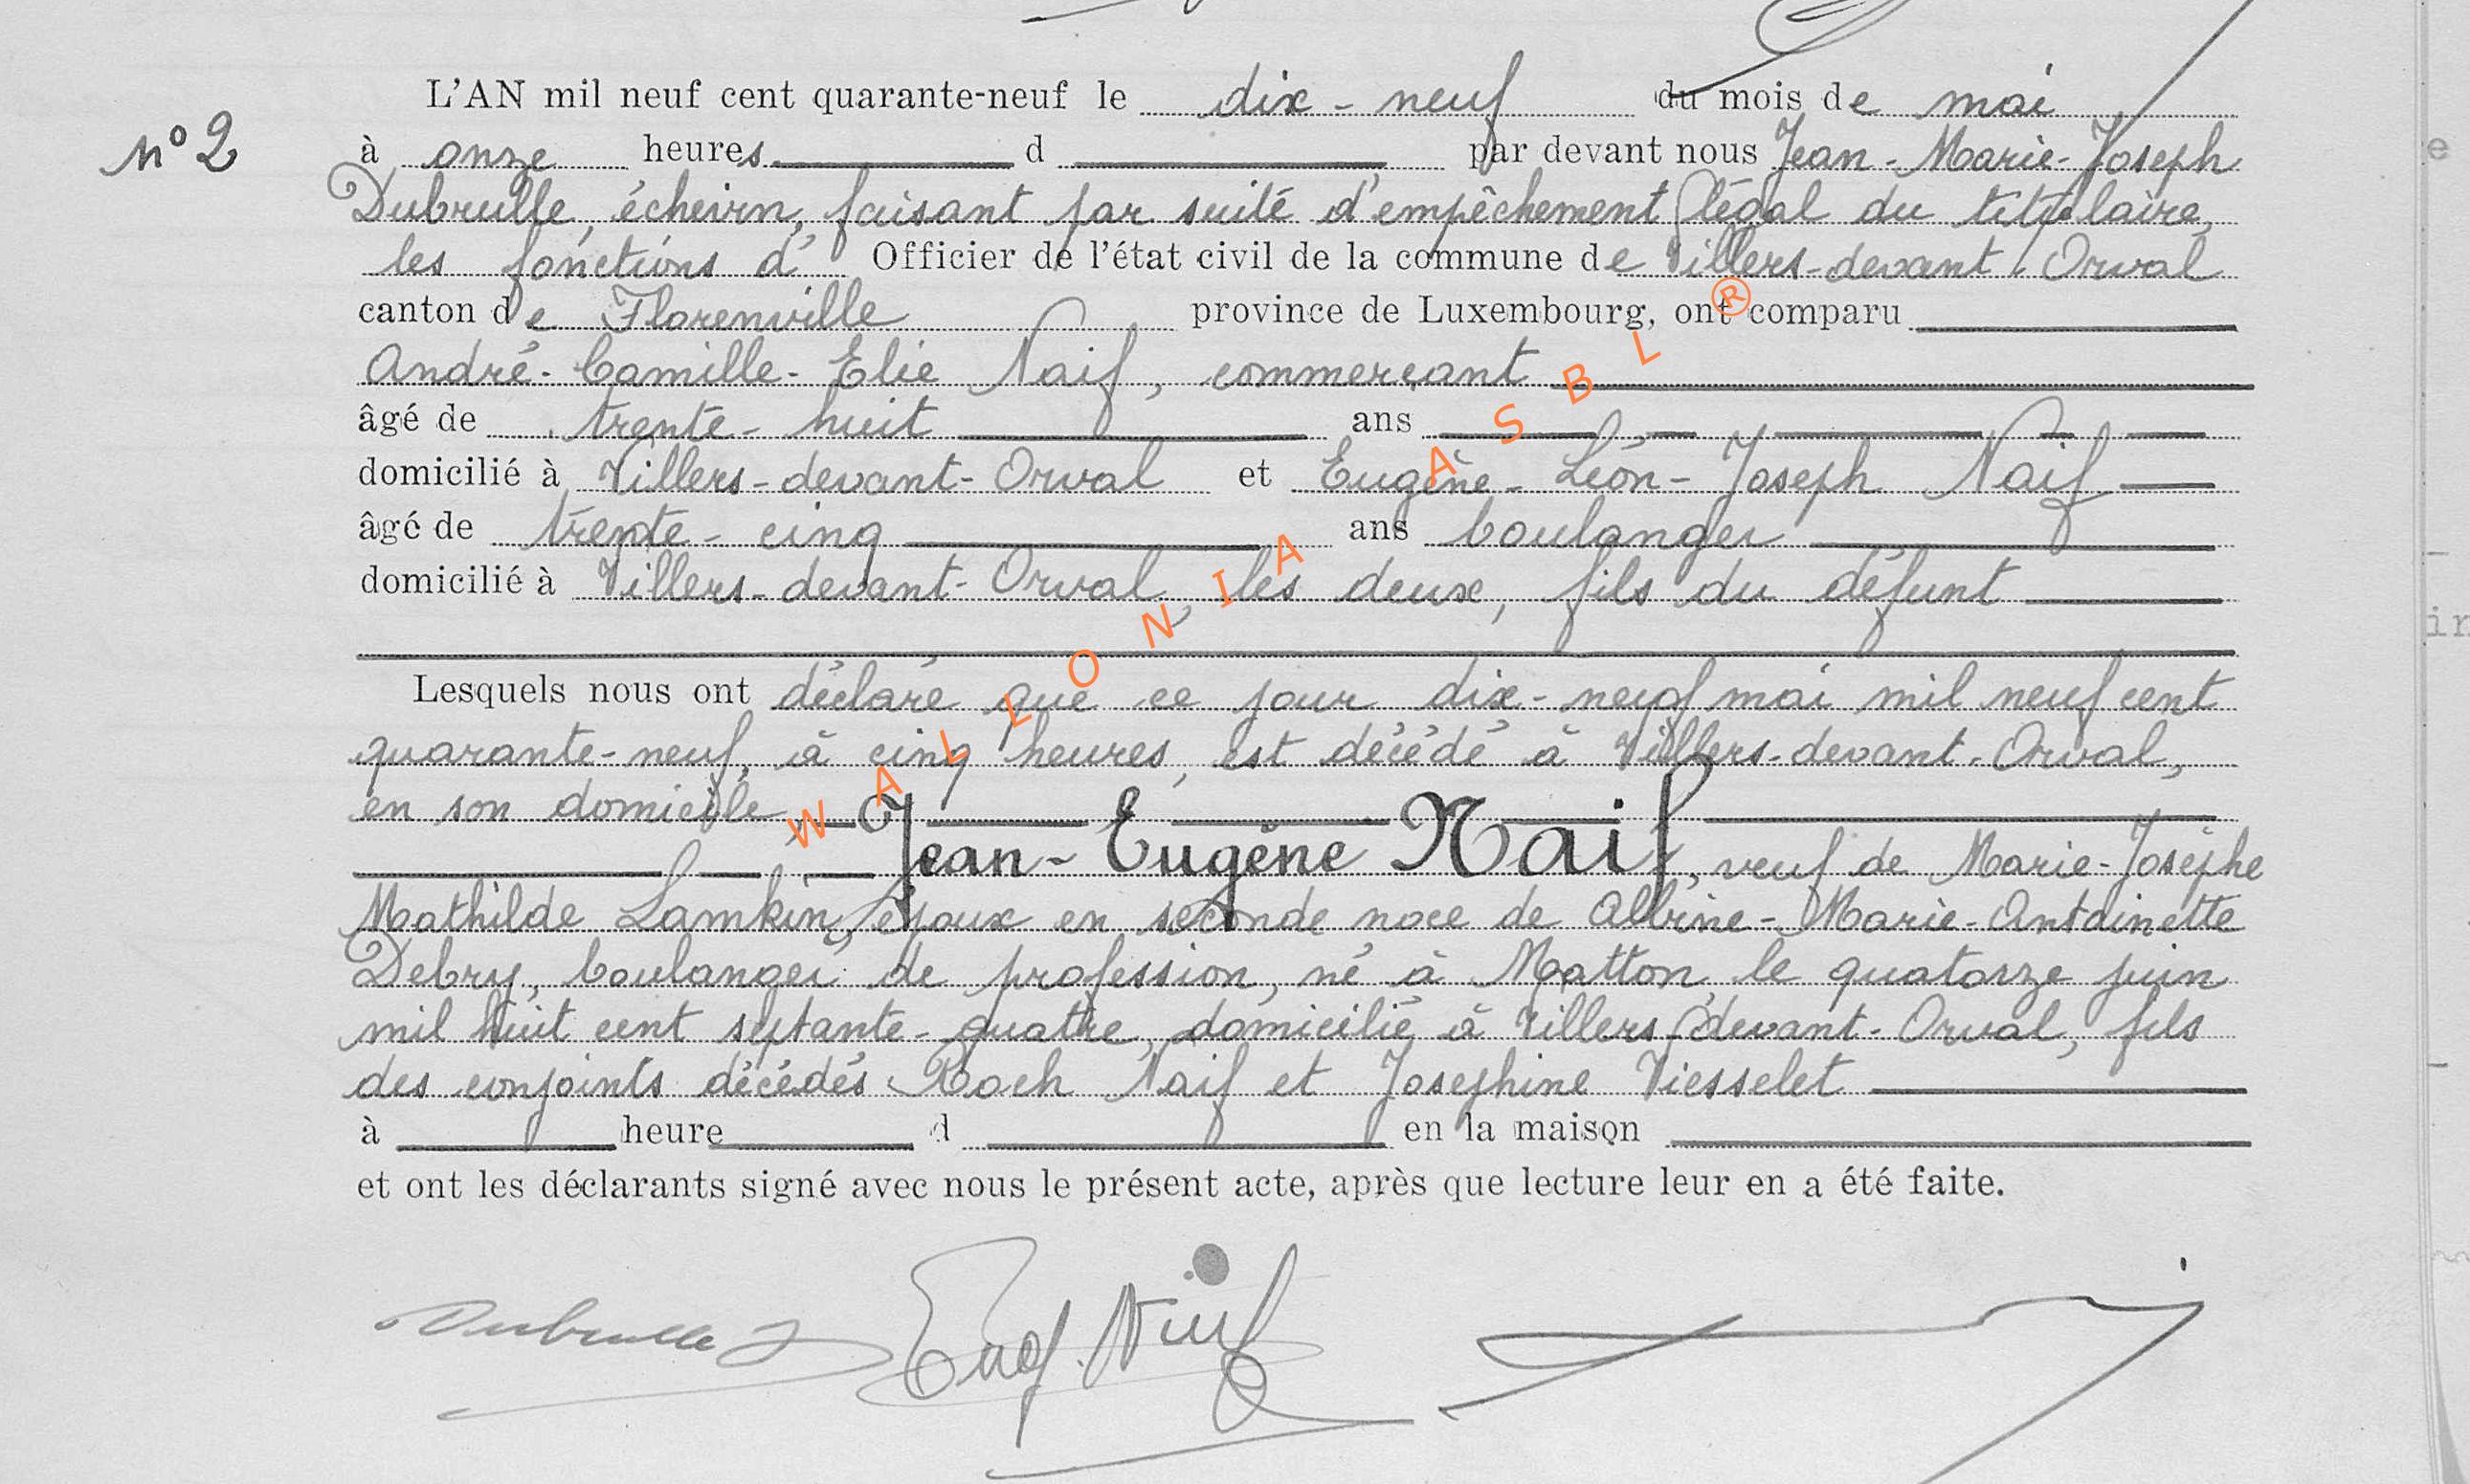 L'AN mil neuf cent quarante-neuf le dix-neuf du mois de mai
n° 2
à onze heures d par devant nous Jean-Marie-Joseph
Dubrulle, échevin, faisant par suite d'empêchement légal du titulaire,
les fonctions d' Officier de l'état civil de la commune de Villers-devant-Orval
canton de Florenville province de Luxembourg, ont comparu
André-Camille-Elie Naif, commerçant
âgé de trente-huit ans
domicilié à Villers-devant-Orval et Eugène-Léon-Joseph Naif
âgé de trente-cinq ans boulanger
domicilié à Villers-devant-Orval, les deux, fils du défunt
Lesquels nous ont déclaré que ce jour dix-neuf mai mil neuf cent
quarante-neuf, à cinq heures, est décédé à Villers-devant-Orval,
en son domicile,
Jean-Eugène Naif, veuf de Marie-Josèphe
Mathilde Lamkin, époux en seconde noce de Albine-Marie-Antoinette
Debry, boulanger de profession, né à Matton, le quatorze juin
mil huit cent septante-quatre, domicilié à Villers-devant-Orval, fils
des conjoints décédés Roch Naif et Josephine Viesselet
à heure d en la maison
et ont les déclarants signé avec nous le présent acte, après que lecture leur en a été faite.
Dubrulle J Eug. Naif
WALLONIA ASBL ®